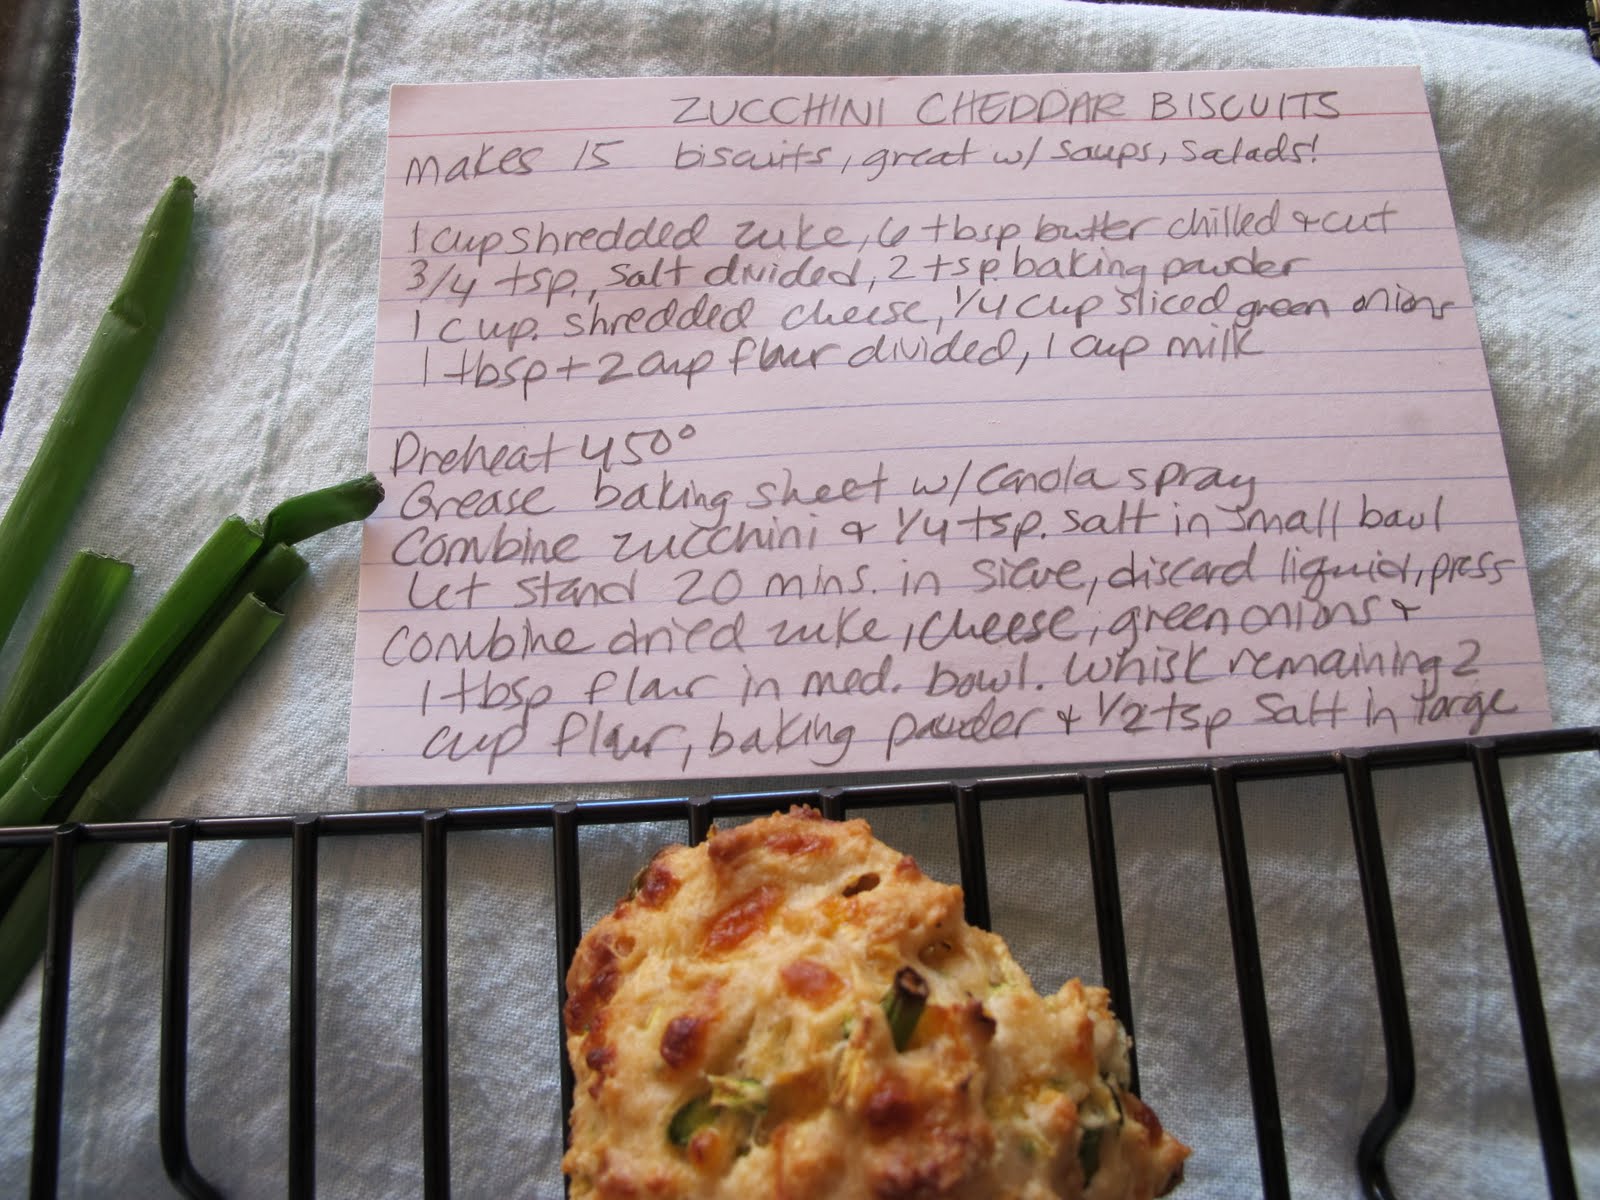 ZUCCHINI CHEDDAR BISCUITS
Makes 15 biscuits, great w/ soups, salads!
1 cup shredded zuke, 6 tbsp butter chilled & cut
3/4 tsp., salt divided, 2 tsp. baking powder
1 cup. shredded cheese, 1/4 cup sliced green onions
1 tbsp + 2 cup flour divided, 1 cup milk
Preheat 450°
Grease baking sheet w/ canola spray
Combine zucchini & 1/4 tsp. salt in small bowl
Let stand 20 mins. in sieve, discard liquid, press
Combine dried zuke, cheese, green onions &
1 tbsp flour in med. bowl. Whisk remaining 2
cup flour, baking powder & 1/2 tsp salt in large